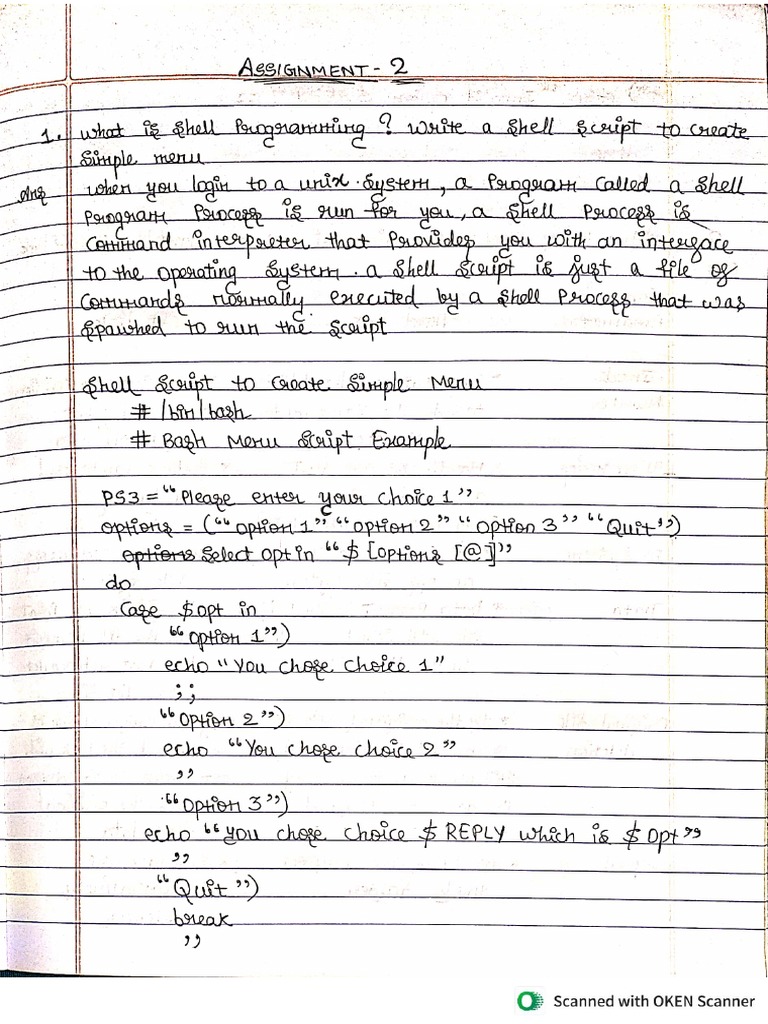 ASSIGNMENT - 2
1. What is Shell Programming ? Write a Shell Script to create
Simple menu
Ans When you login to a unix system, a Program Called a Shell
Program Process is run for you, a Shell Process is
Command interpreter that Provides you with an intergace
to the operating System. a Shell Script is just a file of
Commands normally executed by a Shell Process that was
Spawhed to run the Script
Shell Script to Create Simple Menu
# /bin/bash
# Bash Menu Script Example
PS3 = "Please enter your choice 1"
options = ("option 1" "option 2" "option 3" "Quit")
options Select opt in "$ [options [@]"
do
Case $opt in
"option 1")
echo "You chose choice 1"
;;
"option 2")
echo "You chose choice 2"
,,
"option 3")
echo "you chose choice $ REPLY which is $ opt"
,,
"Quit")
break
,,
Scanned with OKEN Scanner